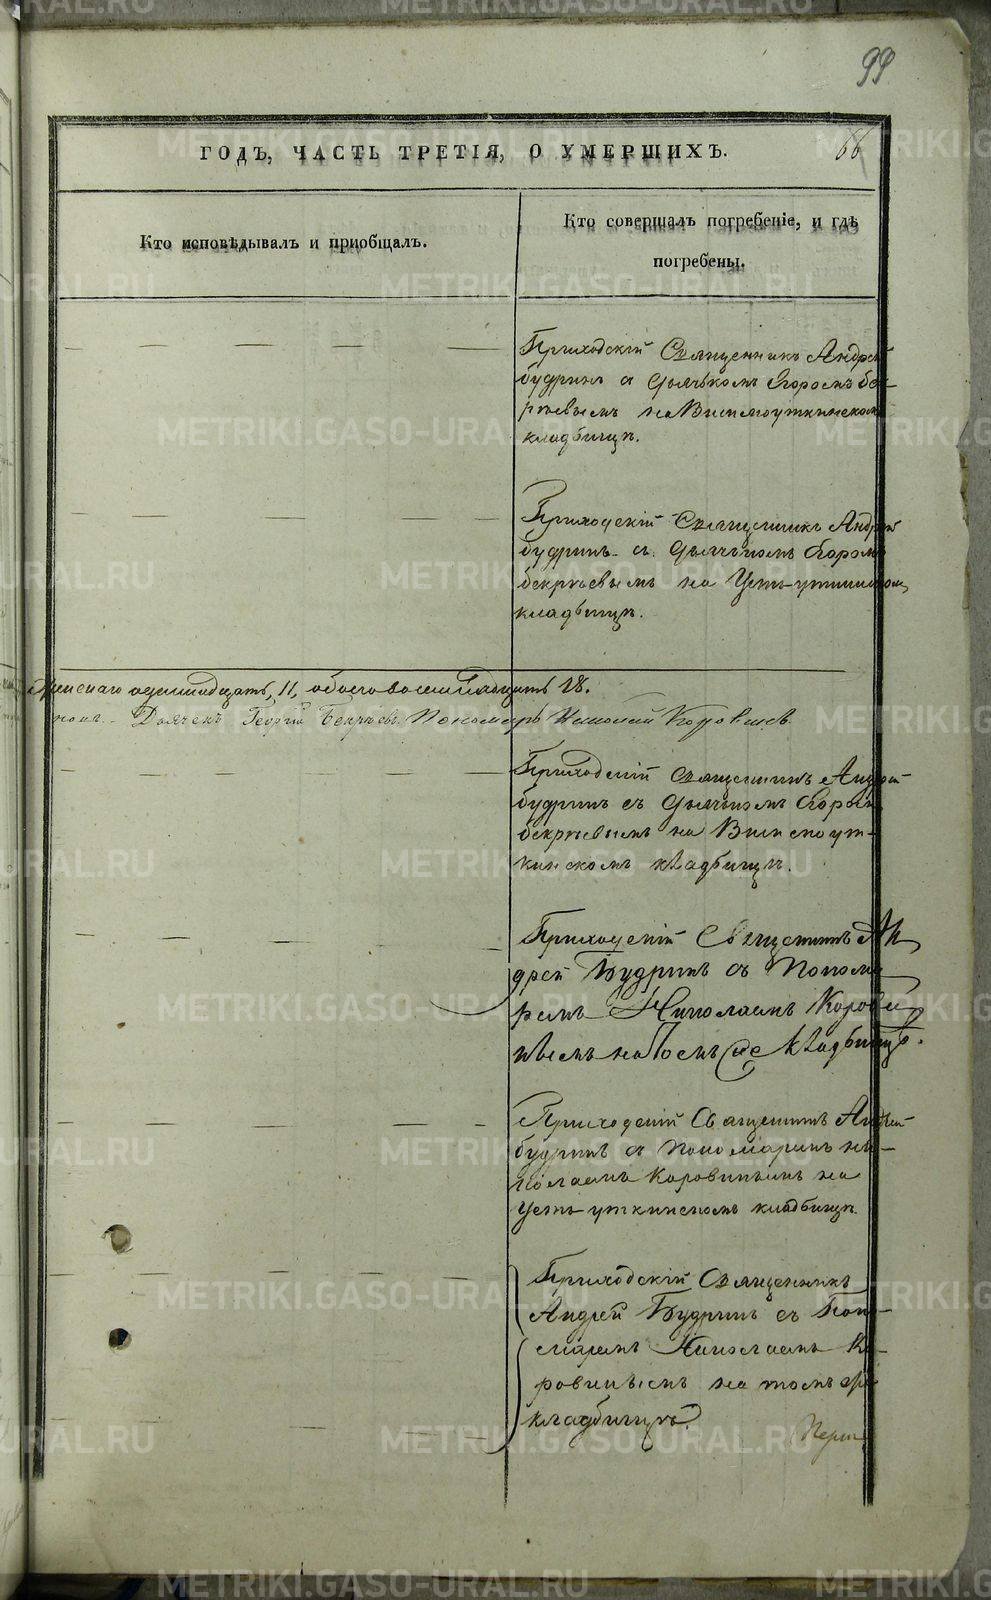 99
ГОДЪ, ЧАСТЬ ТРЕТІЯ, О УМЕРШИХЪ.
66
Кто исповѣдывалъ и пріобщалъ.
Кто совершалъ погребеніе, и гдѣ
погребены.
Приходскій Священникъ Андрей
Будринъ съ Дьячкомъ Егоромъ Бек-
рѣевымъ на Висимоуткинскомъ
кладбищѣ.
Приходскій Священникъ Андрей
Будринъ съ Дьячкомъ Егоромъ
Бекрѣевымъ на Усть-уткинскомъ
кладбищѣ.
Женскаго одиннадцать, 11, обоего восемнадцать 18.
Дьячекъ Георгій Бекрѣевъ. Пономарь Николай Коровинъ
Приходскій Священникъ Андрей
Будринъ съ Дьячкомъ Егоромъ
Бекрѣевымъ на Висимоут-
кинскомъ кладбищѣ.
Приходскій Священникъ Ан
дрей Будринъ съ Понома
ремъ Николаемъ Корови
нымъ на томъ же кладбищѣ.
Приходскій Священникъ Андрей
Будринъ съ Пономаремъ Ни-
колаемъ Коровинымъ на
Усть уткинскомъ кладбищѣ.
Приходскій Священникъ
Андрей Будринъ съ Поно-
маремъ Николаемъ Ко-
ровинымъ на томъ же
кладбищѣ.
METRIKI.GASO-URAL.RU